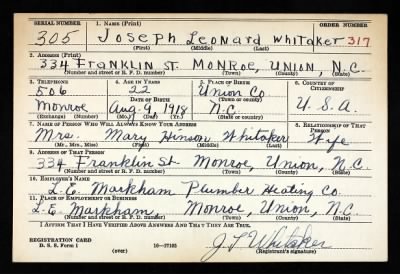 SERIAL NUMBER 1. NAME (Print)
305 Joseph Leonard Whitaker 317
(First) (Middle) (Last)
2. ADDRESS (Print)
334 FRANKLIN ST. MONROE, UNION, N.C.
(Number and street or R. F. D. number) (Town) (County) (State)
3. TELEPHONE 4. AGE IN YEARS 5. PLACE OF BIRTH 6. COUNTRY OF CITIZENSHIP
506 22 Union Co
DATE OF BIRTH (Town or county)
Monroe Aug. 9, 1918 N.C. U.S.A.
(Exchange) (Number) (Mo.) (Day) (Yr.) (State or country)
7. NAME OF PERSON WHO WILL ALWAYS KNOW YOUR ADDRESS 8. RELATIONSHIP OF THAT PERSON
Mrs. Mary Hinson Whitaker Wife
(Mr., Mrs., Miss) (First) (Middle) (Last)
9. ADDRESS OF THAT PERSON
334 Franklin St Monroe, Union, N.C.
(Number and street or R. F. D. number) (Town) (County) (State)
10. EMPLOYER'S NAME
L.E. Markham Plumber Heating Co.
11. PLACE OF EMPLOYMENT OR BUSINESS
L.E. Markham, Monroe, Union, N.C.
(Number and street or R. F. D. number) (Town) (County) (State)
I AFFIRM THAT I HAVE VERIFIED ABOVE ANSWERS AND THAT THEY ARE TRUE.
REGISTRATION CARD J L Whitaker
D. S. S. Form 1 (over) 16—17105 (Registrant's signature)